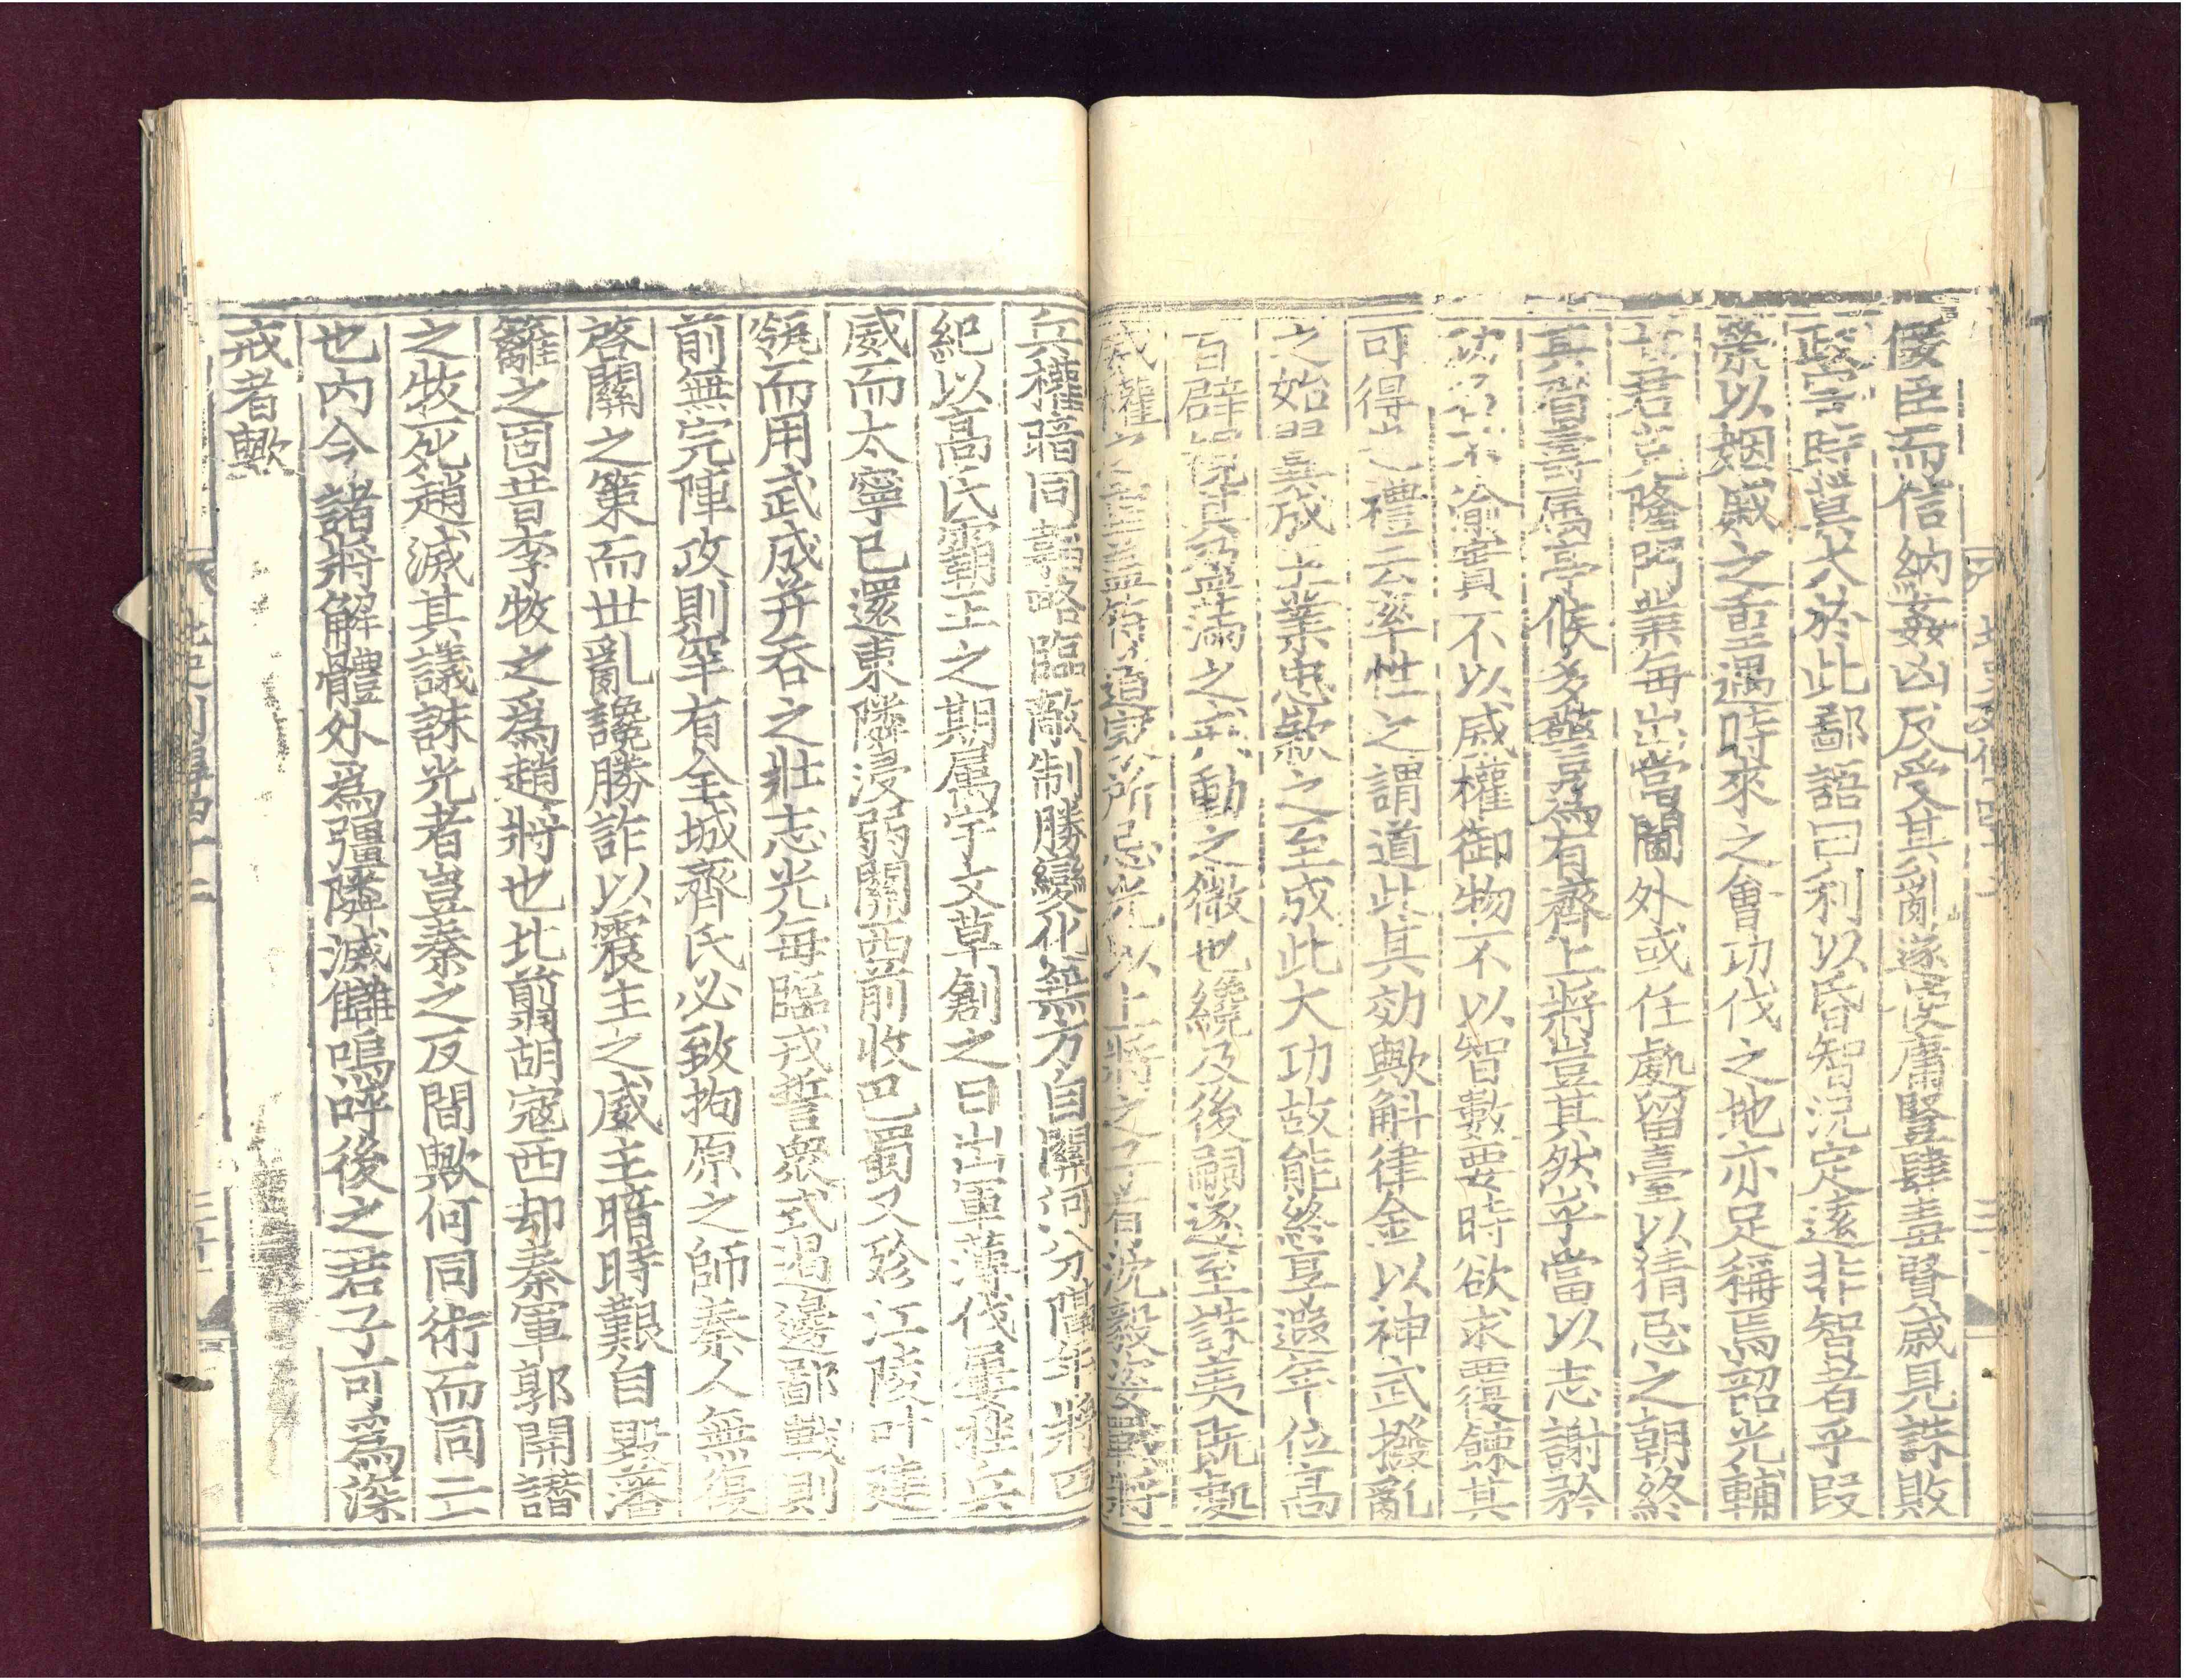 佞臣而信納姦凶反受其亂遂使庸豎肆毒賢戚見誅敗
政害時莫大於此鄙語曰利以昏智況定遠非智者乎段
榮以姻戚之重遇時來之會功伐之地亦足稱焉韶光輔
七君克隆門業每出當閫外或任處留臺以猜忌之朝終
其眉壽屬亭候多警爲有齊上將豈其然乎當以志謝矜
功名不渝實不以威權御物不以智數要時欲求覆餗其
可得也禮云率性之謂道此其効歟斛律金以神武撥亂
之始翼成王業忠款之至成此大功故能終享遐年位高
百辟觀其盈滿之戒動之微也纔及後嗣遂至誅夷旣處
威權之重蓋符道家所忌光以上將之子有沈毅姿戰將
兵權暗同韜略臨敵制勝變化無方自關河分隔年將四
紀以高氏霸王之期屬宇文草創之日出軍薄伐屢挫兵
威而太寧已還東隣浸弱關西前收巴蜀又殄江陵叶建
瓴而用武成并吞之壯志光每臨戎誓衆式遏邊鄙戰則
前無完陣攻則罕有全城齊氏必致拘原之師秦人無復
啓關之策而世亂讒勝詐以震主之威主暗時艱自毀藩
籬之固昔李牧之爲趙將也北翦胡寇西却秦軍郭開譖
之牧死趙滅其議誅光者豈秦之反間歟何同術而同亡
也内令諸將解體外爲彊隣滅讎嗚呼後之君子可爲深
戒者歟
北史列傳四十二